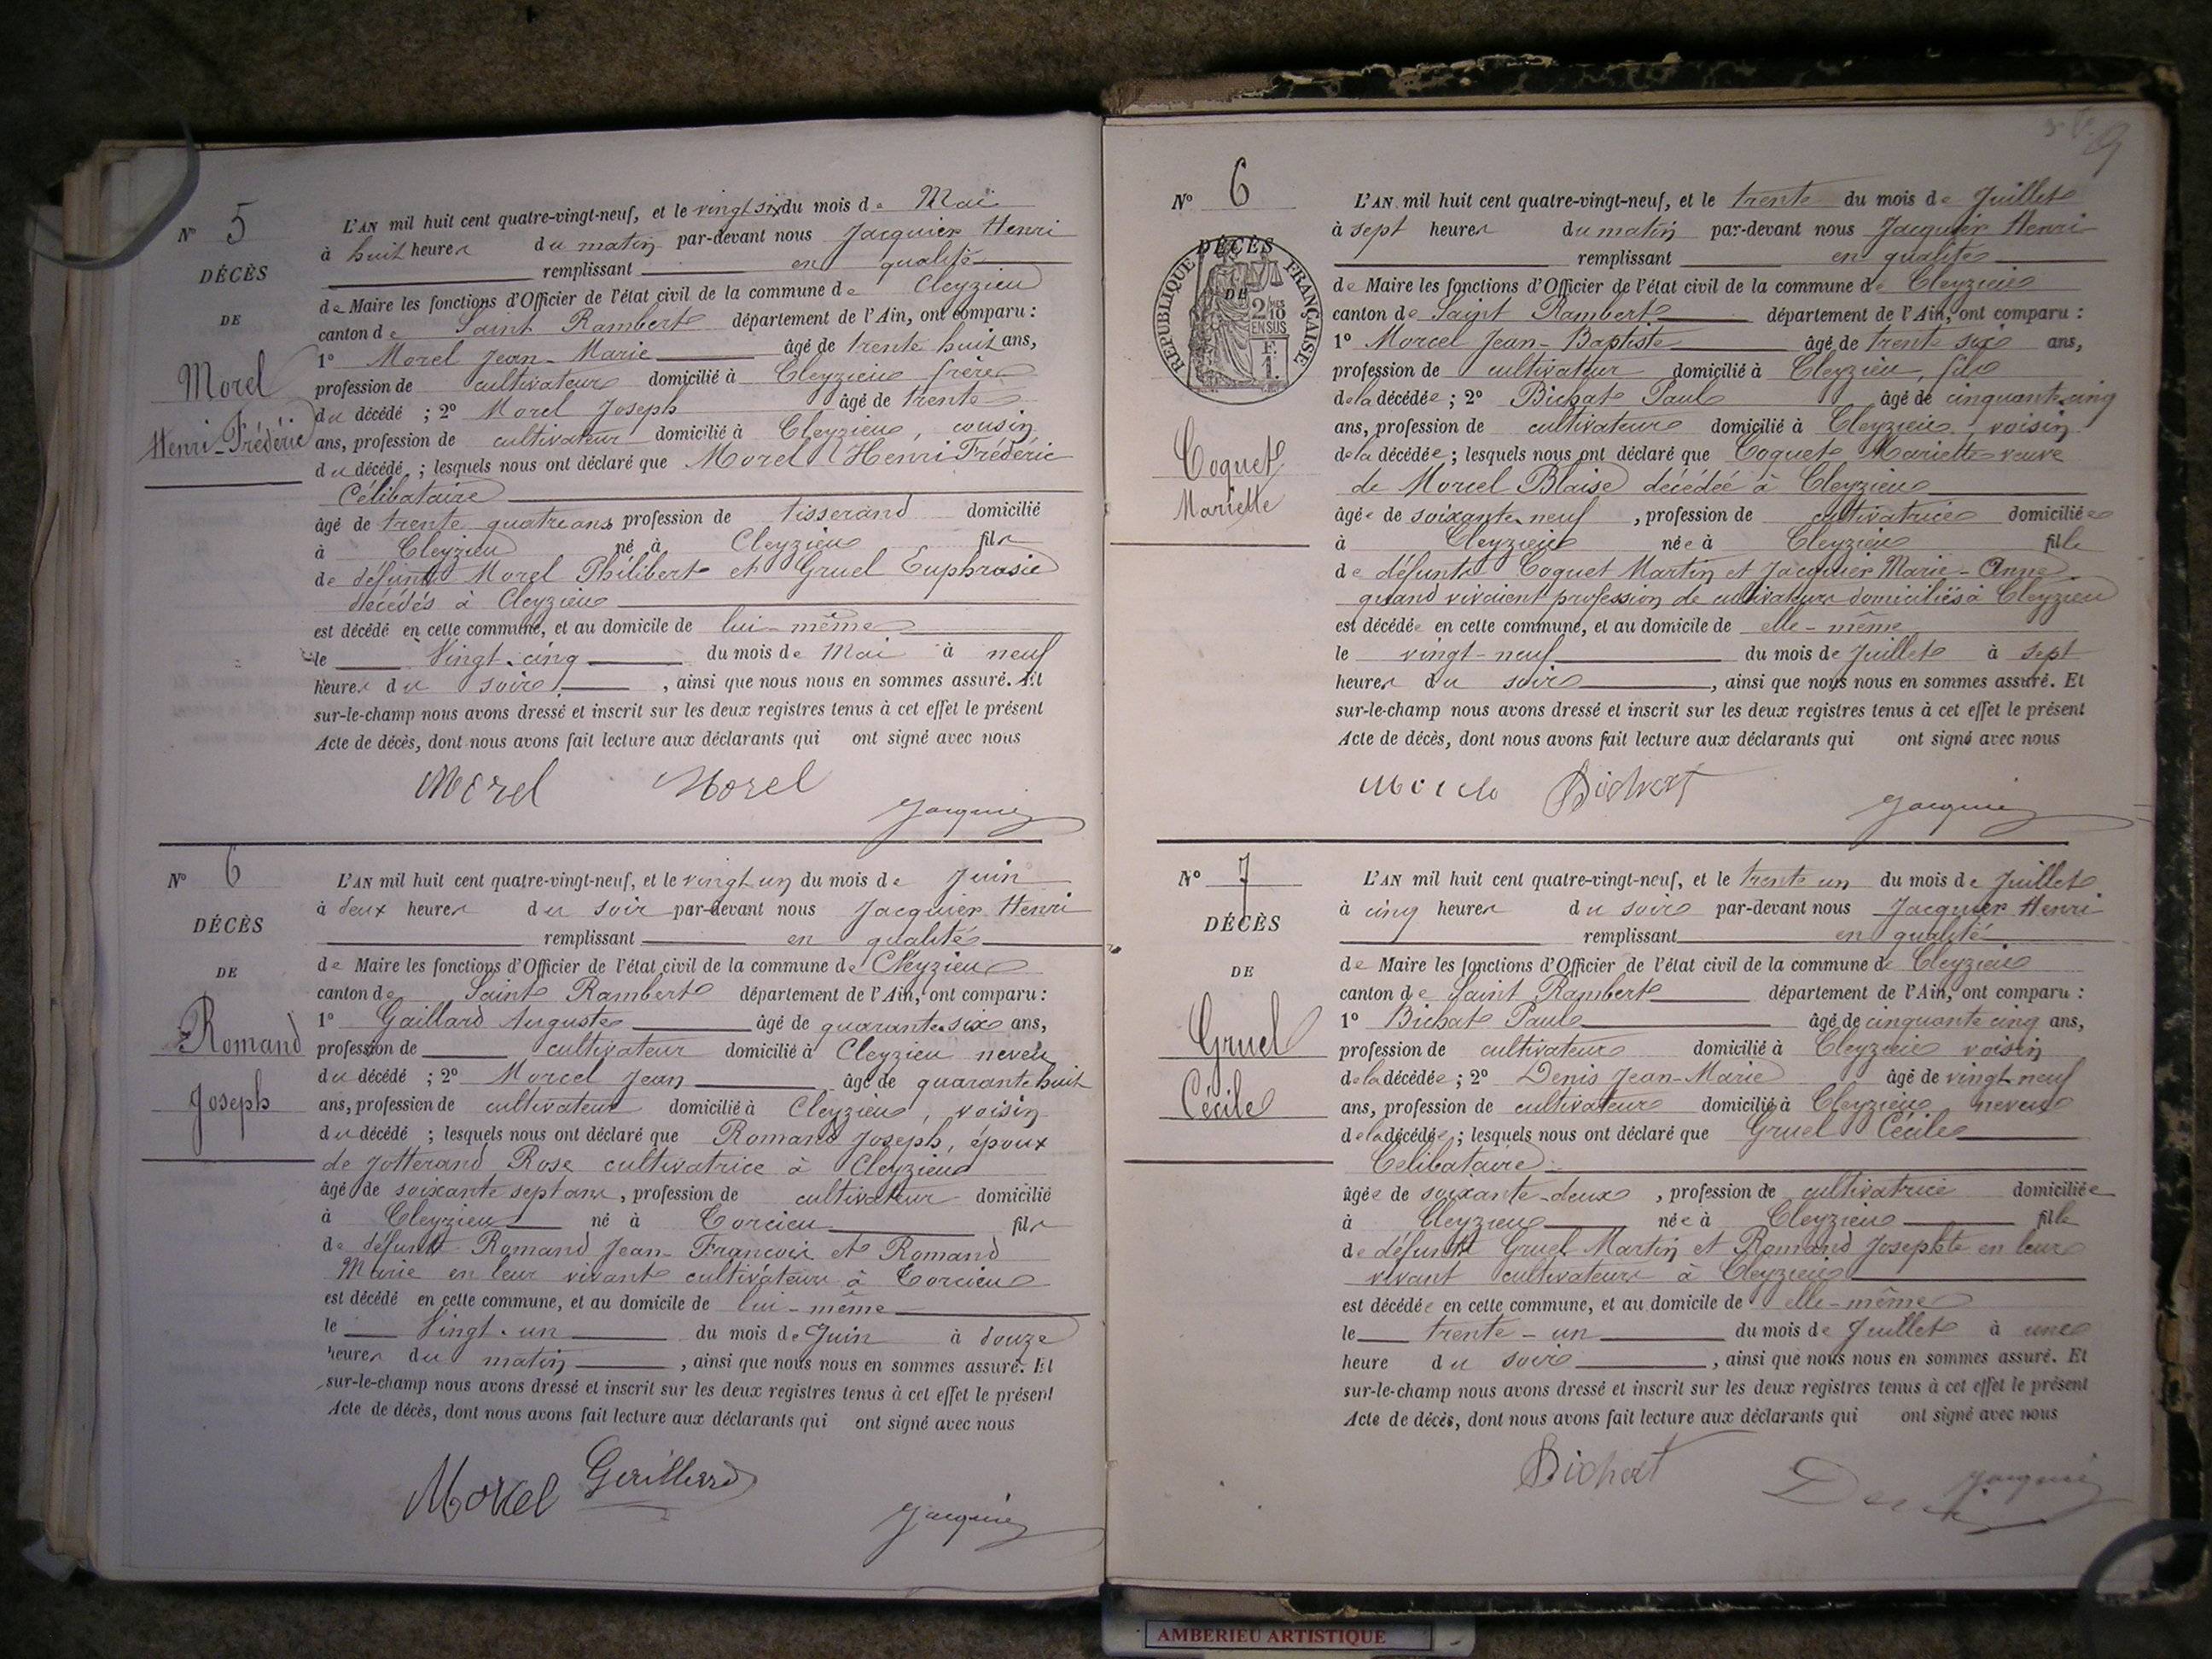 N° 5
DÉCÈS
DE
Morel
Henri-Frédéric
L'AN mil huit cent quatre-vingt-neuf, et le vingt six du mois de Mai
à huit heures du matin par-devant nous Jacquier Henri
remplissant en qualité
de Maire les fonctions d'Officier de l'état civil de la commune de Cleyzieu
canton de Saint Rambert département de l'Ain, ont comparu :
1° Morel Jean-Marie âgé de trente huit ans,
profession de cultivateur domicilié à Cleyzieu frère
du décédé ; 2° Morel Joseph âgé de trente
ans, profession de cultivateur domicilié à Cleyzieu, cousin
du décédé ; lesquels nous ont déclaré que Morel Henri Frédéric
Célibataire
âgé de trente quatre ans profession de tisserand domicilié
à Cleyzieu né à Cleyzieu fils
de défunts Morel Philibert et Gruel Euphrosie
décédés à Cleyzieu
est décédé en cette commune, et au domicile de lui-même
le Vingt-cinq du mois de Mai à neuf
heures du soir, ainsi que nous nous en sommes assuré. Et
sur-le-champ nous avons dressé et inscrit sur les deux registres tenus à cet effet le présent
Acte de décès, dont nous avons fait lecture aux déclarants qui ont signé avec nous
Morel Morel
Jacquier
N° 6
DÉCÈS
DE
Romand
Joseph
L'AN mil huit cent quatre-vingt-neuf, et le vingt un du mois de Juin
à deux heures du soir par-devant nous Jacquier Henri
remplissant en qualité
de Maire les fonctions d'Officier de l'état civil de la commune de Cleyzieu
canton de Saint Rambert département de l'Ain, ont comparu :
1° Gaillard Auguste âgé de quarante-six ans,
profession de cultivateur domicilié à Cleyzieu neveu
du décédé ; 2° Morcel Jean âgé de quarante huit
ans, profession de cultivateur domicilié à Cleyzieu, voisin
du décédé ; lesquels nous ont déclaré que Romand Joseph, époux
de Jotterand Rose cultivatrice à Cleyzieu
âgé de soixante sept ans, profession de cultivateur domicilié
à Cleyzieu né à Torcieu fils
de défunts Romand Jean-François et Romand
Marie en leur vivant cultivateurs à Torcieu
est décédé en cette commune, et au domicile de lui-même
le Vingt-un du mois de Juin à douze
heures du matin, ainsi que nous nous en sommes assuré. Et
sur-le-champ nous avons dressé et inscrit sur les deux registres tenus à cet effet le présent
Acte de décès, dont nous avons fait lecture aux déclarants qui ont signé avec nous
Morcel Gaillard
Jacquier
N° 6
DÉCÈS
DE
RÉPUBLIQUE FRANÇAISE
2/10 EN SUS
F. 1.
Coquet
Mariette
L'AN mil huit cent quatre-vingt-neuf, et le trente du mois de Juillet
à sept heures du matin par-devant nous Jacquier Henri
remplissant en qualité
de Maire les fonctions d'Officier de l'état civil de la commune de Cleyzieu
canton de Saint Rambert département de l'Ain, ont comparu :
1° Morcel Jean-Baptiste âgé de trente six ans,
profession de cultivateur domicilié à Cleyzieu, fils
de la décédée ; 2° Bichat Paul âgé de cinquante cinq
ans, profession de cultivateur domicilié à Cleyzieu, voisin
de la décédée ; lesquels nous ont déclaré que Coquet Mariette veuve
de Morcel Blaise décédée à Cleyzieu
âgée de soixante-neuf, profession de cultivatrice domiciliée
à Cleyzieu née à Cleyzieu fille
de défunts Coquet Martin et Jacquier Marie-Anne
quand vivaient profession de cultivateurs domiciliés à Cleyzieu
est décédée en cette commune, et au domicile de elle-même
le vingt-neuf du mois de Juillet à sept
heures du soir, ainsi que nous nous en sommes assuré. Et
sur-le-champ nous avons dressé et inscrit sur les deux registres tenus à cet effet le présent
Acte de décès, dont nous avons fait lecture aux déclarants qui ont signé avec nous
Bichat
Jacquier
N° 7
DÉCÈS
DE
Gruel
Cécile
L'AN mil huit cent quatre-vingt-neuf, et le trente un du mois de Juillet
à cinq heures du soir par-devant nous Jacquier Henri
remplissant en qualité
de Maire les fonctions d'Officier de l'état civil de la commune de Cleyzieu
canton de Saint Rambert département de l'Ain, ont comparu :
1° Bichat Paul âgé de cinquante cinq ans,
profession de cultivateur domicilié à Cleyzieu voisin
de la décédée ; 2° Denis Jean-Marie âgé de vingt neuf
ans, profession de cultivateur domicilié à Cleyzieu neveu
de la décédée ; lesquels nous ont déclaré que Gruel Cécile
Celibataire
âgée de soixante-deux, profession de cultivatrice domiciliée
à Cleyzieu née à Cleyzieu fille
de défunts Gruel Martin et Romand Josephte en leur
vivant cultivateurs à Cleyzieu
est décédée en cette commune, et au domicile de elle-même
le trente-un du mois de Juillet à une
heure du soir, ainsi que nous nous en sommes assuré. Et
sur-le-champ nous avons dressé et inscrit sur les deux registres tenus à cet effet le présent
Acte de décès, dont nous avons fait lecture aux déclarants qui ont signé avec nous
Bichat
Jacquier
AMBERIEU ARTISTIQUE